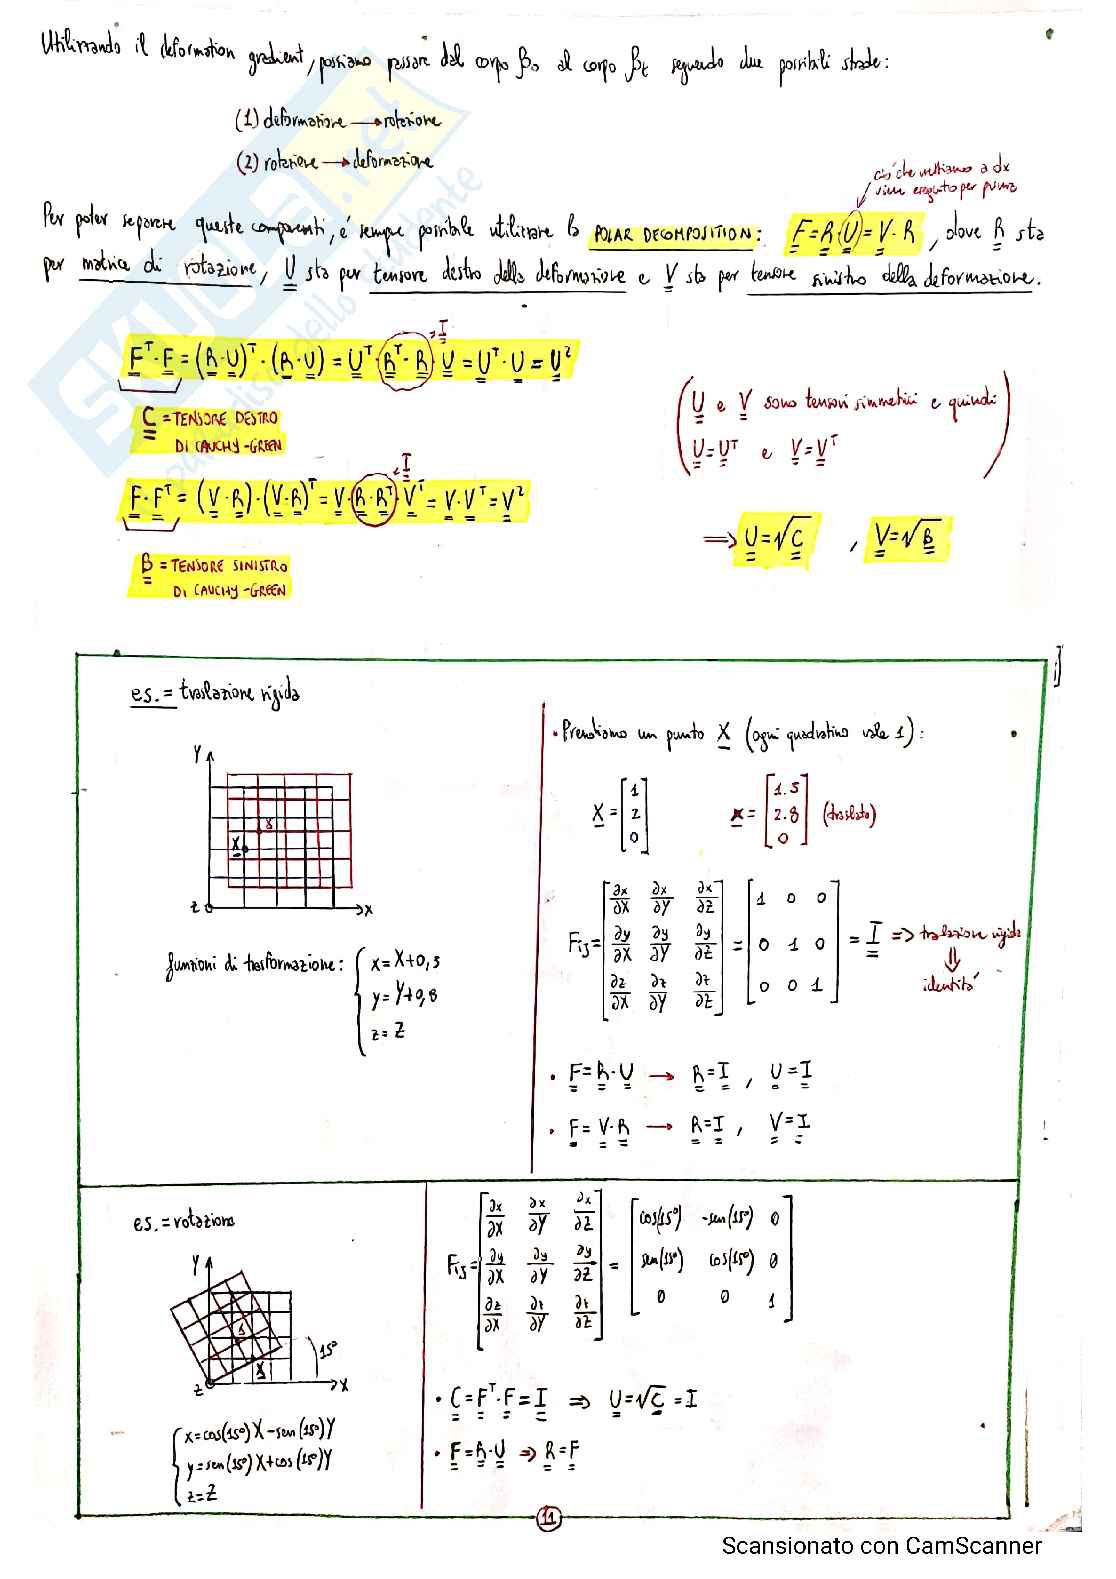 Utilizzando il deformation gradient, possiamo passare dal corpo β₀ al corpo βt seguendo due possibili strade:
(1) deformazione → rotazione
(2) rotazione → deformazione
ciò che mettiamo a dx
viene eseguito per primo
Per poter separare queste componenti, è sempre possibile utilizzare la POLAR DECOMPOSITION: F=R·U=V·R, dove R sta
per matrice di rotazione, U sta per tensore destro della deformazione e V sta per tensore sinistro della deformazione.
Fᵀ·F=(R·U)ᵀ·(R·U)=Uᵀ·Rᵀ·R·U=Uᵀ·U=U²
=I
C=TENSORE DESTRO
DI CAUCHY-GREEN
(U e V sono tensori simmetrici e quindi
U=Uᵀ e V=Vᵀ)
F·Fᵀ=(V·R)·(V·R)ᵀ=V·R·Rᵀ·Vᵀ=V·Vᵀ=V²
I
B=TENSORE SINISTRO
DI CAUCHY-GREEN
⇒ U=√C , V=√B
es.=traslazione rigida
Y
X
x
Z
X
funzioni di trasformazione: { x=X+0,5
y=Y+0,8
z=Z
• Prendiamo un punto X (ogni quadratino vale 1):
X=[1 2 0] x=[1.5 2.8 0] (traslato)
Fij=[∂x/∂X ∂x/∂Y ∂x/∂Z
∂y/∂X ∂y/∂Y ∂y/∂Z
∂z/∂X ∂z/∂Y ∂z/∂Z]
=[1 0 0
0 1 0
0 0 1]
=I ⇒ traslazione rigida
⇓
identità
• F=R·U → R=I , U=I
• F=V·R → R=I , V=I
es.=rotazione
Y
x
X
15°
Z
X
{ x=cos(15°)X-sen(15°)Y
y=sen(15°)X+cos(15°)Y
z=Z
Fij=[∂x/∂X ∂x/∂Y ∂x/∂Z
∂y/∂X ∂y/∂Y ∂y/∂Z
∂z/∂X ∂z/∂Y ∂z/∂Z]
=[cos(15°) -sen(15°) 0
sen(15°) cos(15°) 0
0 0 1]
• C=Fᵀ·F=I ⇒ U=√C=I
• F=R·U ⇒ R=F
11
Scansionato con CamScanner
SKUOLA.net
paradiso dello studente